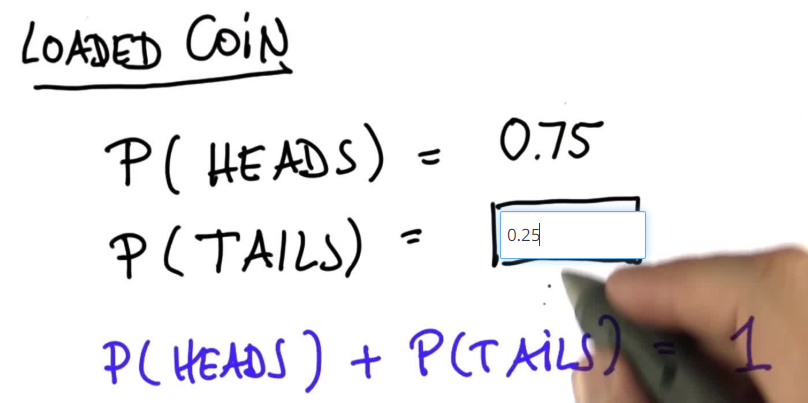 LOADED COIN
P( HEADS ) = 0.75
P(TAILS) = 0.25
P( HEADS ) + P(TAILS) = 1